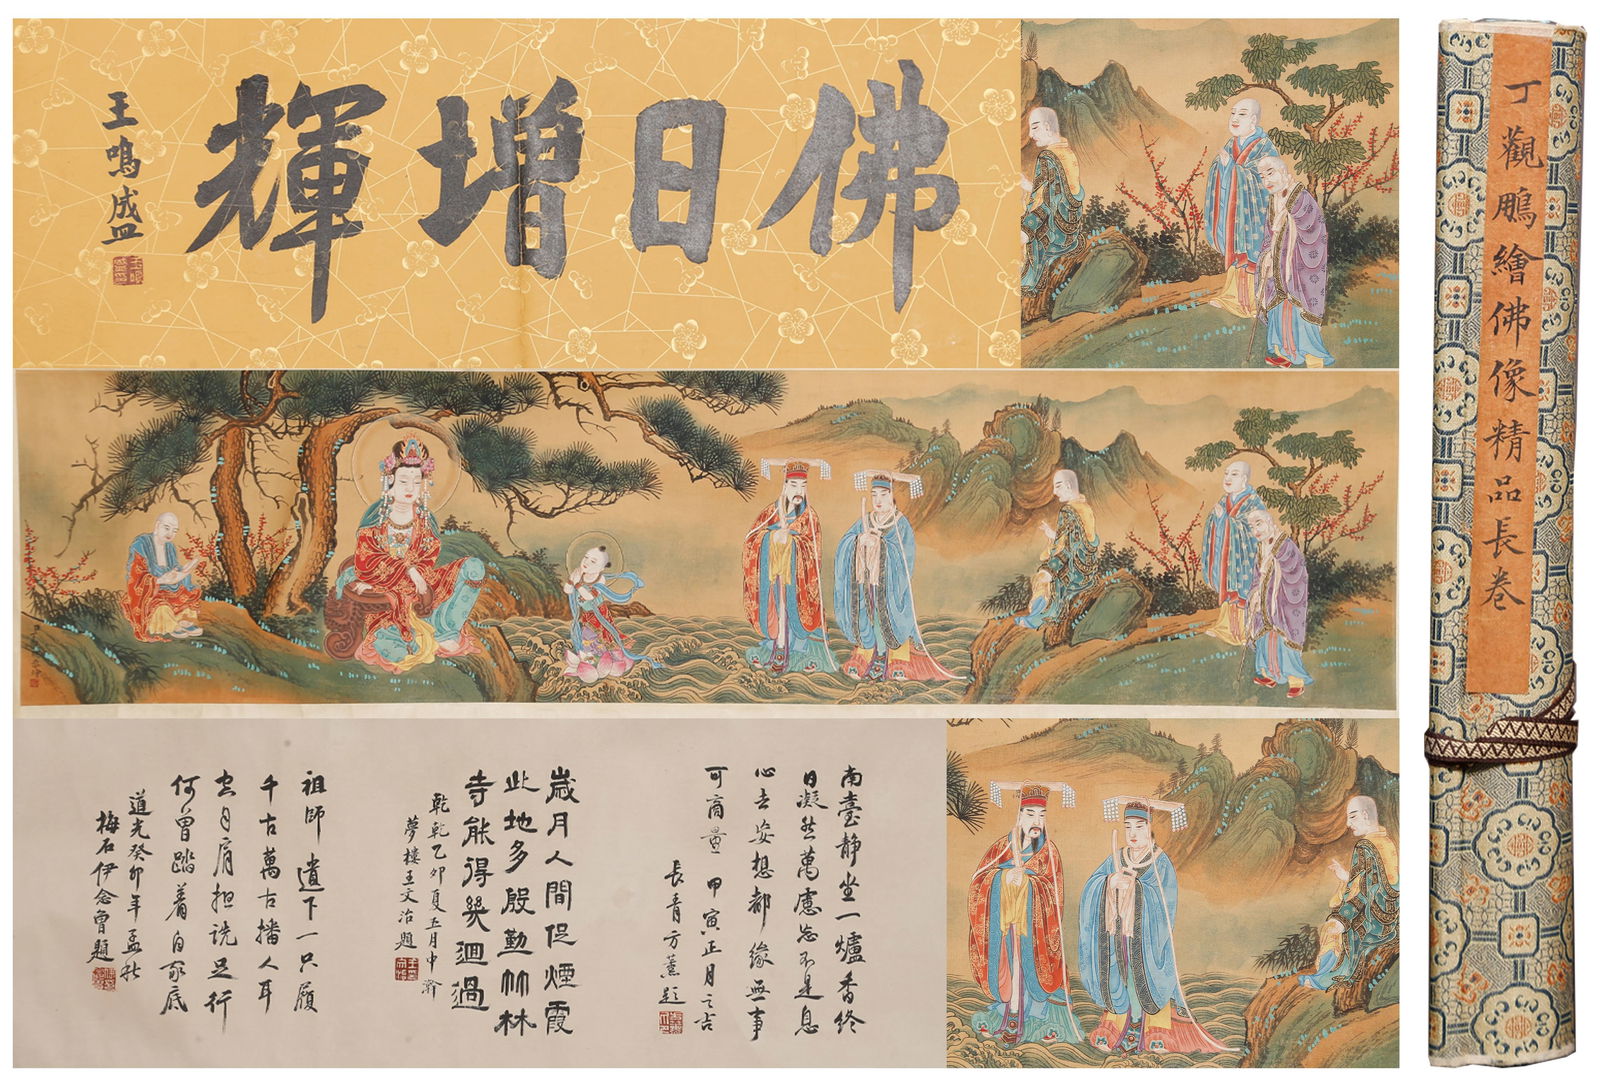 佛日增輝
王鳴盛
丁觀鵬繪佛像精品長卷
南臺靜坐一爐香終
日凝然萬慮忘不是息
心去妄想都緣無事
可商量 甲寅正月之吉
長青方薰題
歲月人間促煙霞
此地多殷勤竹林
寺能得幾迴過
乾乾乙卯夏五月中澣
夢樓王文治題
祖師遺下一只履
千古萬古播人耳
空自肩担跣足行
何曾踏着自家底
道光癸卯年孟秋
梅石伊念曾題